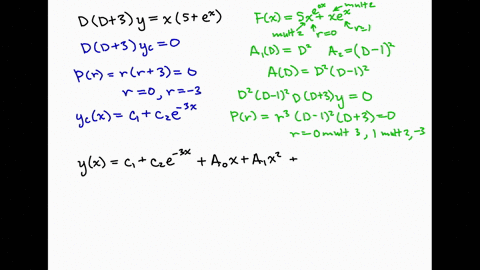 D(D+3)y = x(5+eˣ)
D(D+3)y_c = 0
P(r) = r(r+3) = 0
r=0, r=-3
y_c(x) = c₁ + c₂e⁻³ˣ
F(x) = 5xe⁰ˣ + xeˣ
mult 2
mult 2 r=0 r=1
A₁(D) = D² A₂ = (D-1)²
A(D) = D²(D-1)²
D²(D-1)² D(D+3)y = 0
P(r) = r³(D-1)²(D+3) = 0
r=0 mult 3, 1 mult 2, -3
y(x) = c₁ + c₂e⁻³ˣ + A₀x + A₁x² +